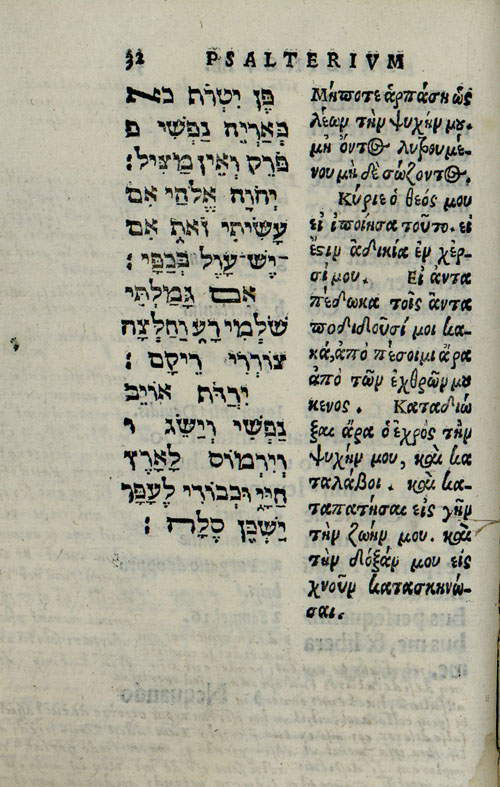 32 PSALTERIVM
פֶּן יִטְרֹף כא
כְּאַרְיֵה נַפְשִׁי פ
פֹּרֵק וְאֵין מַצִּיל׃
יְהֹוָה אֱלֹהַי אִם
עָשִׂיתִי זֹאת אִם
יֶשׁ־עָוֶל בְּכַפָּי׃
אִם גָּמַלְתִּי
שֹׁלְמִי רָע וַחַלְּצָה
צוֹרְרִי רֵיקָם׃
יִרַדֹּף אוֹיֵב
נַפְשִׁי וְיַשֵּׂג ו
וְיִרְמוֹס לָאָרֶץ
חַיָּי וּכְבוֹדִי לֶעָפָר
יַשְׁכֵּן סֶלָה׃
Μήποτε ἁρπάσῃ ὡς
λέων τὴν ψυχήν μου.
μὴ ὄντος λυτρουμέ-
νου μὴ δὲ σώζοντος.
Κύριε ὁ θεός μου
εἰ ἐποίησα τοῦτο. εἰ
ἔστιν ἀδικία ἐν χερ-
σί μου. Εἰ ἀντα
πέδωκα τοῖς ἀντα
ποδιδοῦσί μοι κα-
κά, ἀπὸ πέσοιμι ἄρα
ἀπὸ τῶν ἐχθρῶν μου
κενος. Καταδιώ
ξαι ἄρα ὁ ἐχρὸς τὴν
ψυχήν μου, καὶ κα
ταλάβοι. καὶ κα-
ταπατήσαι εἰς γῆν
τὴν ζωήν μου. καὶ
τὴν δόξαν μου εἰς
χνοῦν κατασκηνώ-
σαι.